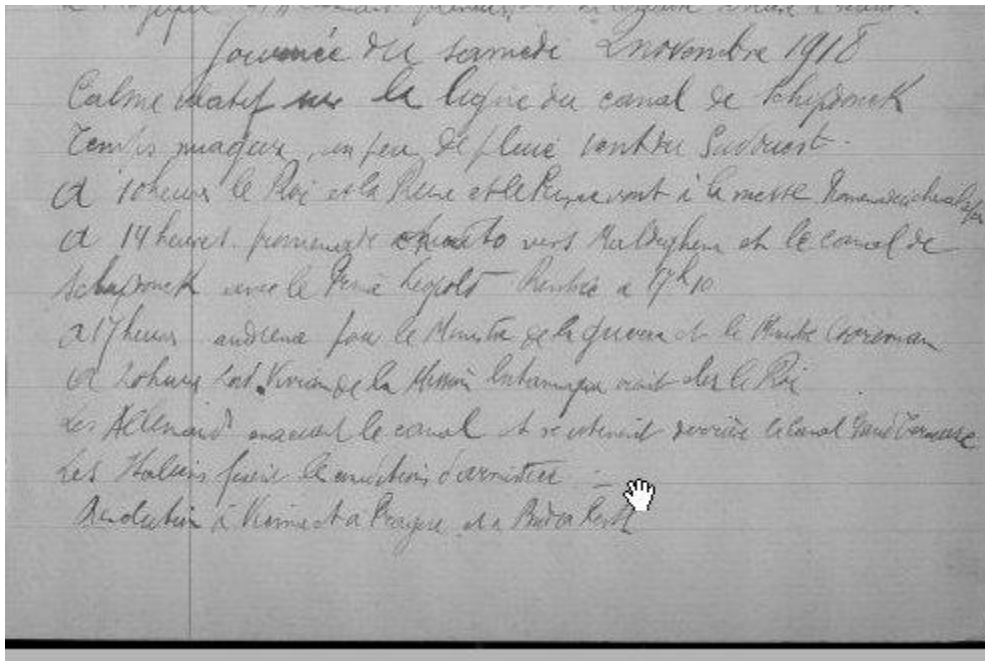 Journée du samedi 2 novembre 1918
Calme relatif sur la ligne du canal de Schipdonck
Temps , un peu de pluie vent du Sudouest.
A 10 heures le Roi et la Reine et le Prince vont à la messe
A 14 heures promenade en auto vers Maldeghem et le canal de
Schipdonck avec le Prince Léopold Rentrée à 17h10
A 17 heures audience par le Ministre de la guerre et le Ministre Cooreman
A 20 heures Lord Vivian de la Mission britannique vient chez le Roi
Les Allemands évacuent le canal et se retirent derrière le canal Gand Terneuze
Les Italiens les conditions d'armistice
Révolution à Vienne et à Prague et à Buda Pesth